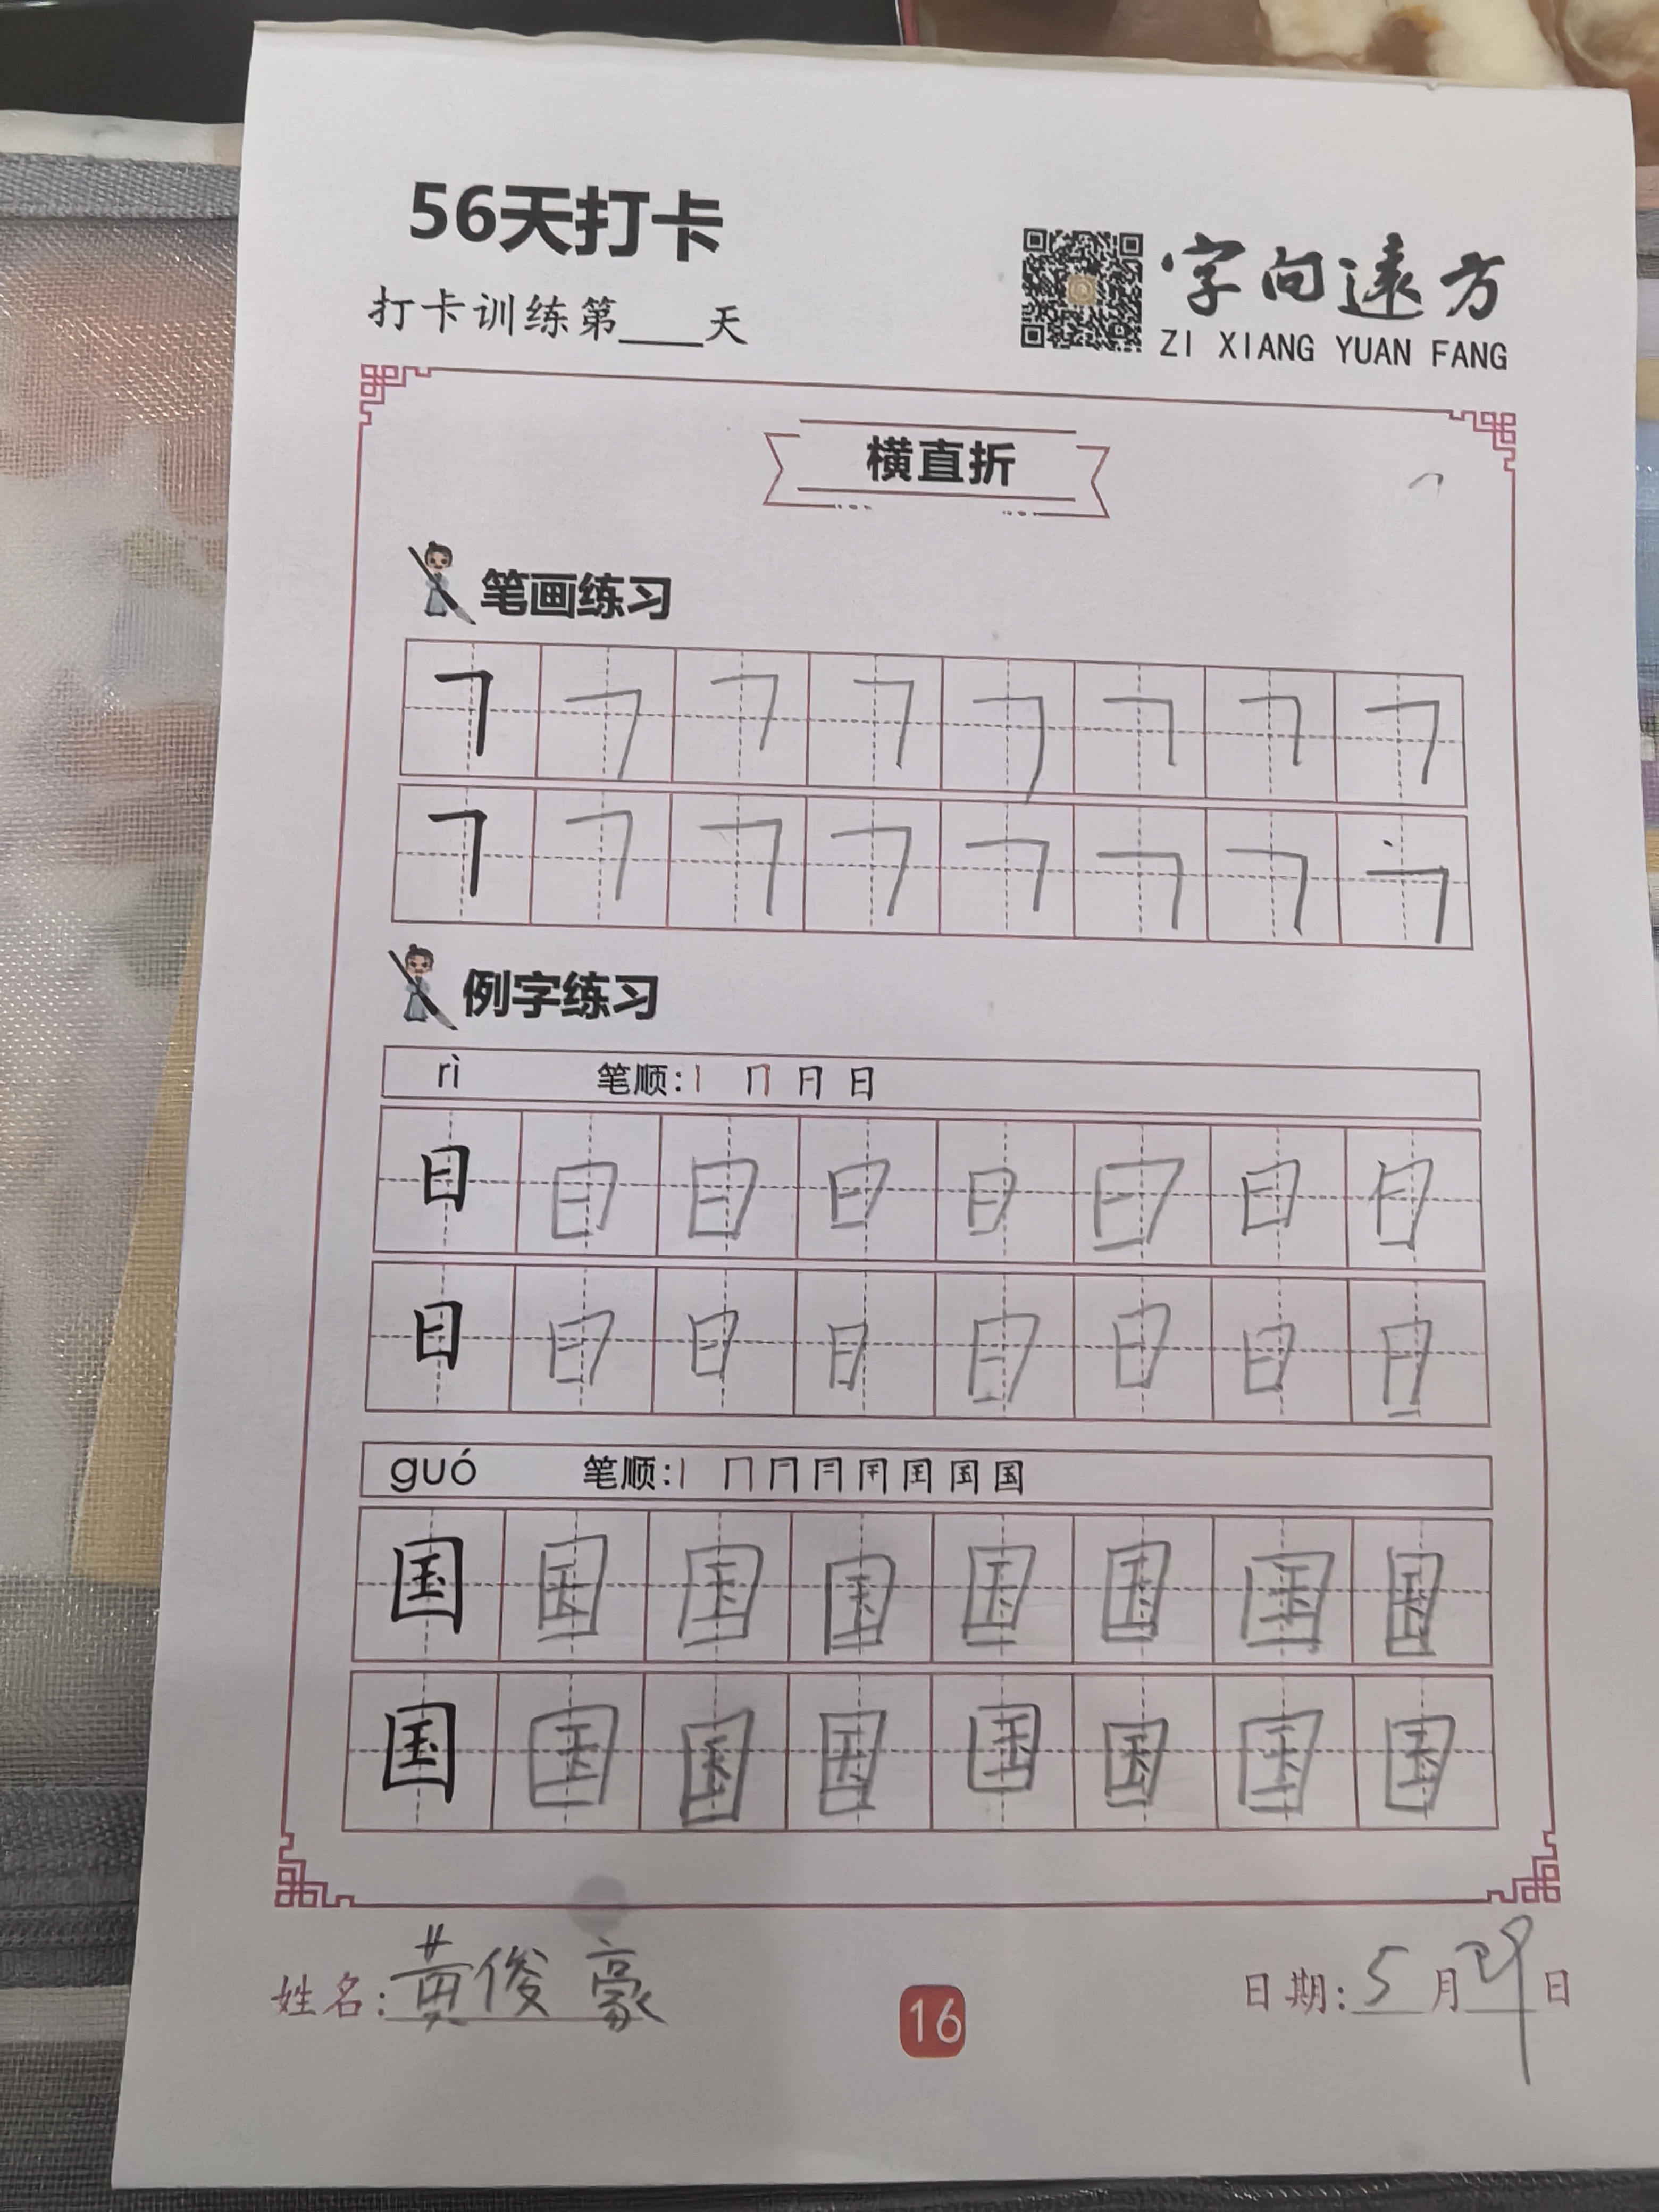 56天打卡
打卡训练第____天
字向遠方
ZI XIANG YUAN FANG
横直折
笔画练习
㇕ ㇕ ㇕ ㇕ ㇕ ㇕ ㇕ ㇕
㇕ ㇕ ㇕ ㇕ ㇕ ㇕ ㇕ ㇕
例字练习
rì 笔顺:丨 冂 月 日
日 日 日 日 日 日 日 日
日 日 日 日 日 日 日 日
guó 笔顺:丨 冂 冂 冃 用 囯 国 国
国 国 国 国 国 国 国 国
国 国 国 国 国 国 国 国
姓名:黄俊豪
16
日期:5月29日